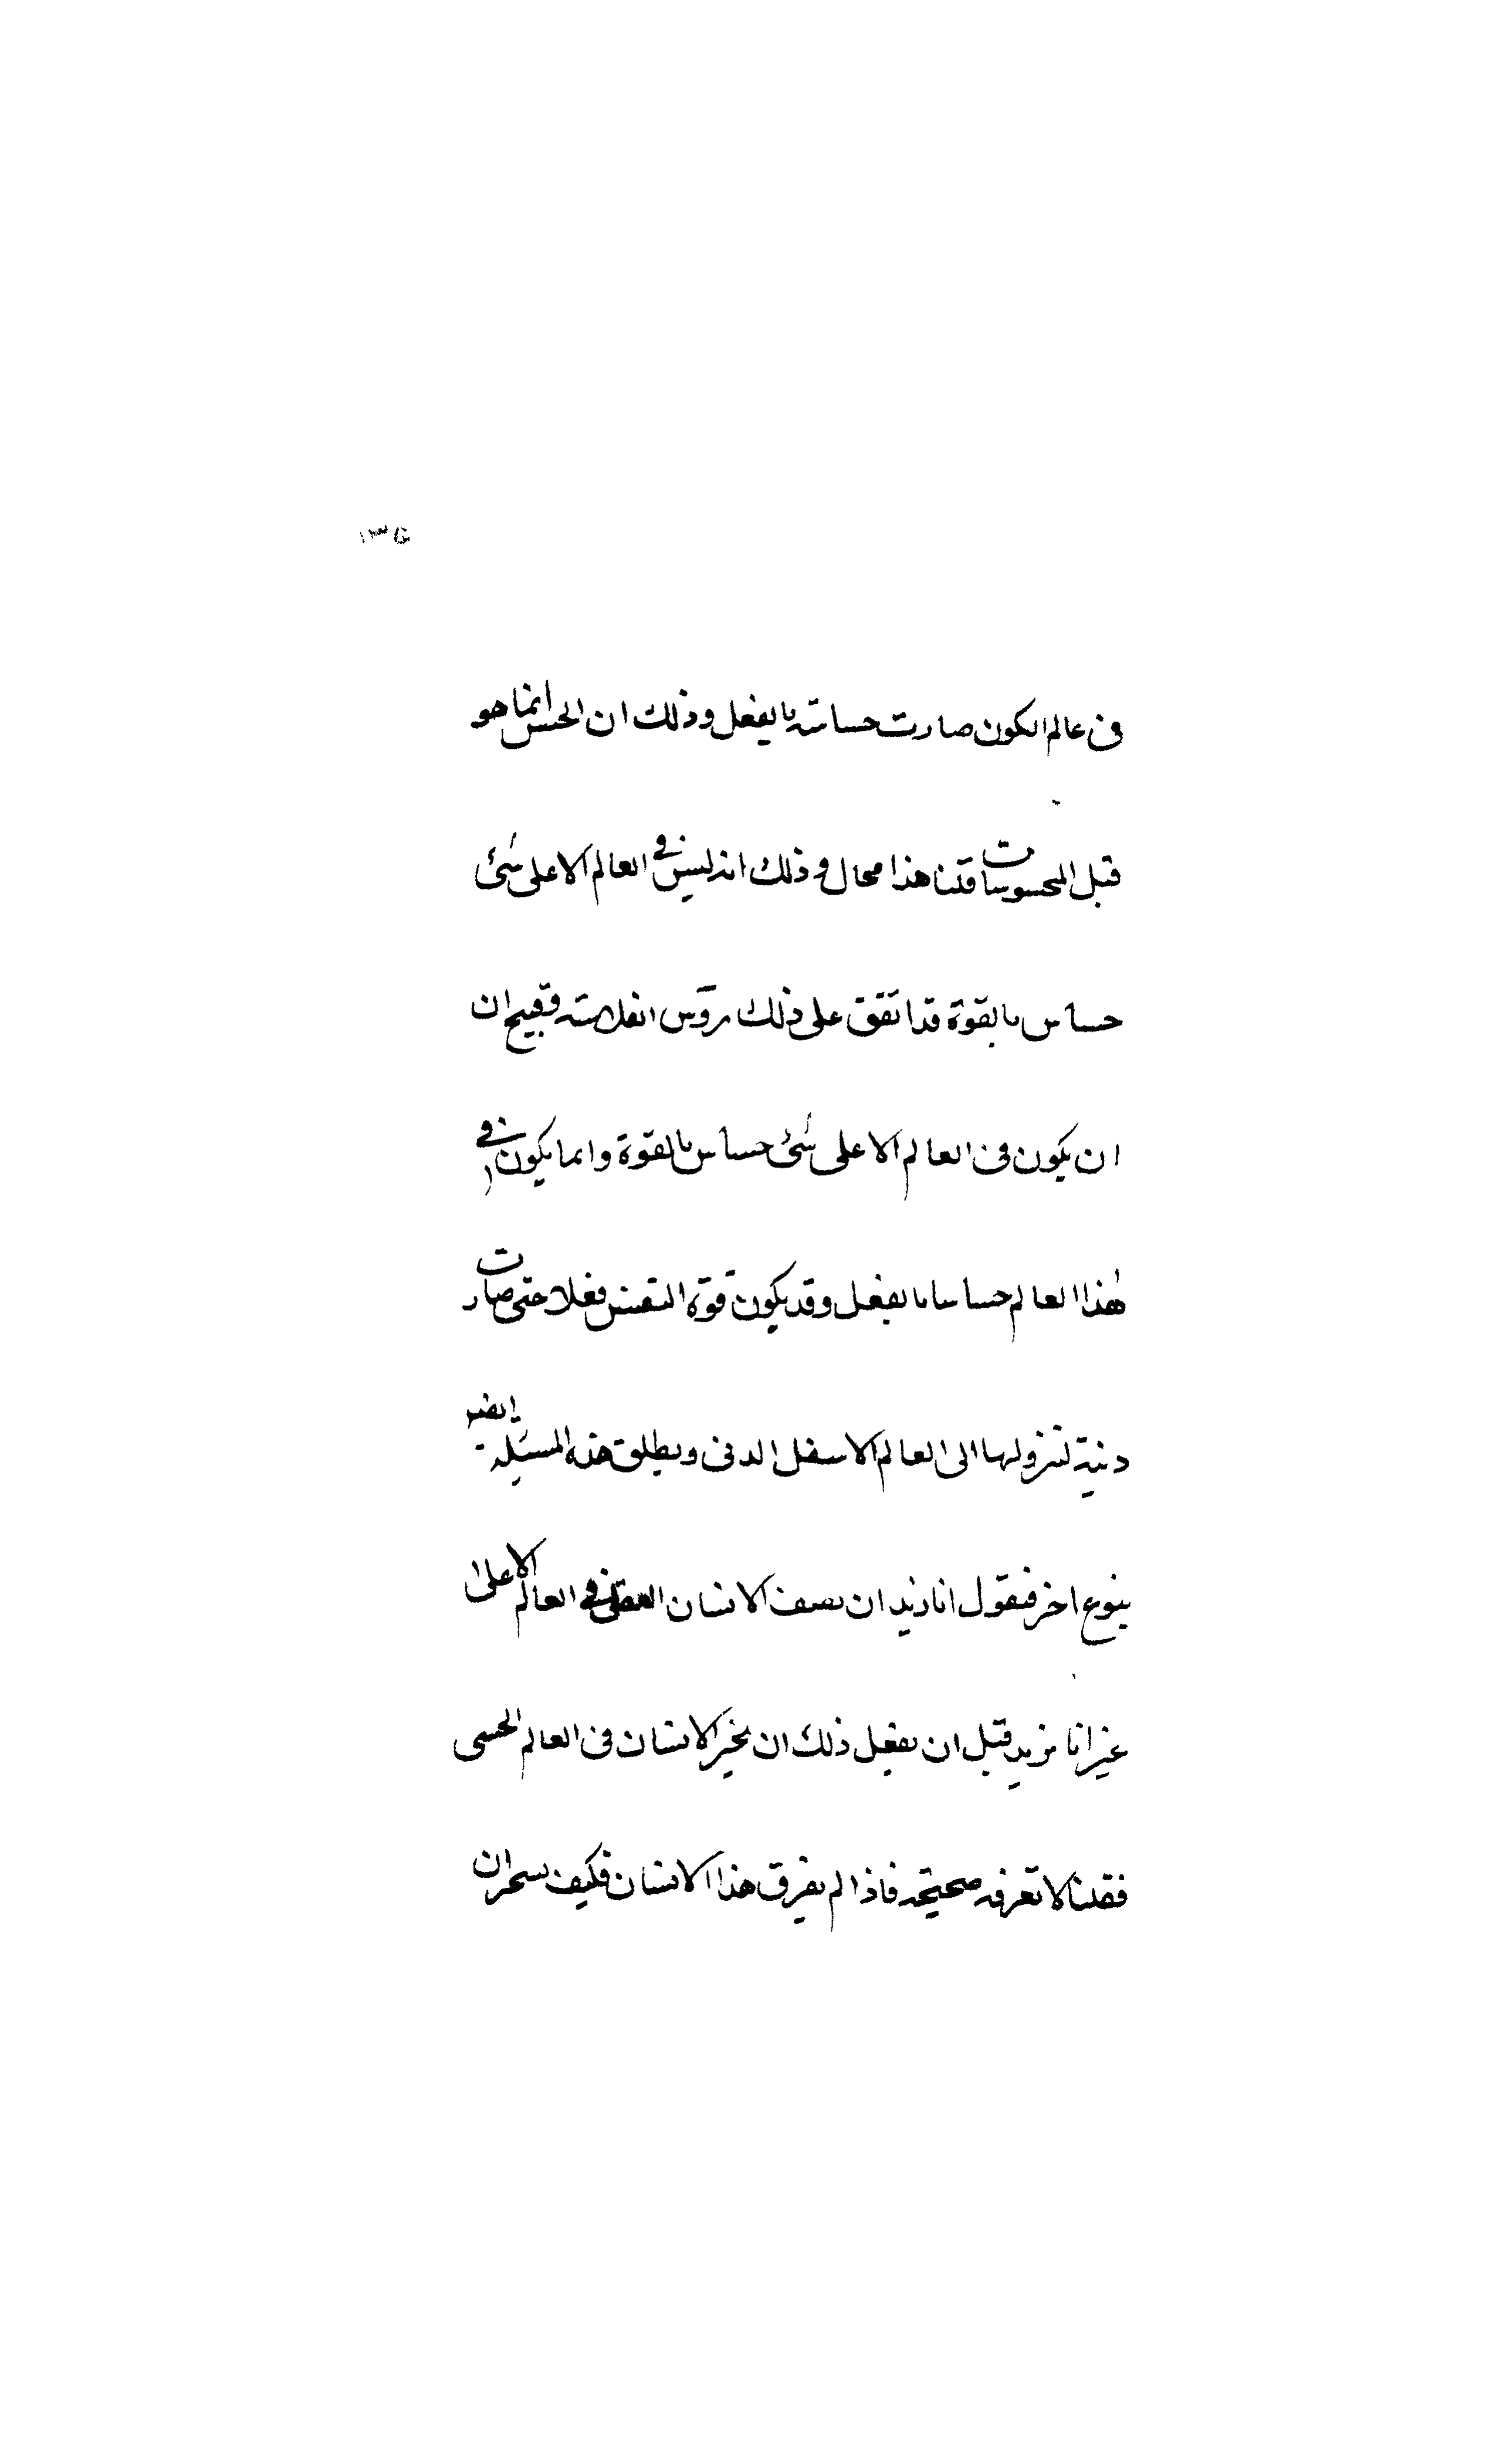 ١٣٥
فى عالم الكون صارت حساسة بالفعل وذلك ان الحس انما هو
قبل المحسوسات قلنا هذا محال وذلك انه ليس فى العالم الاعلى شئ
حساس بالقوة قد اتفق على ذلك روس الفلاسفة فقبيح ان
ان يكون فى العالم الاعلى شئ حساس بالقوة وانما يكون فى
هذا العالم حساسا بالفعل وقد يكون قوة النفس فعلا حتى صارت
دنية لنزولها الى العالم الاسفل الدنى ويطلق هذه المسئلة ايضا
بنوع اخر فنقول انا نريد ان نصف الانسان العقلى فى العالم الاعلى
غير انا نريد قبل ان نفعل ذلك ان نخبر الانسان فى العالم الحسى
فقلنا لا نعرفه صحيحة فاذا لم نعرف هذا الانسان فكيف ان